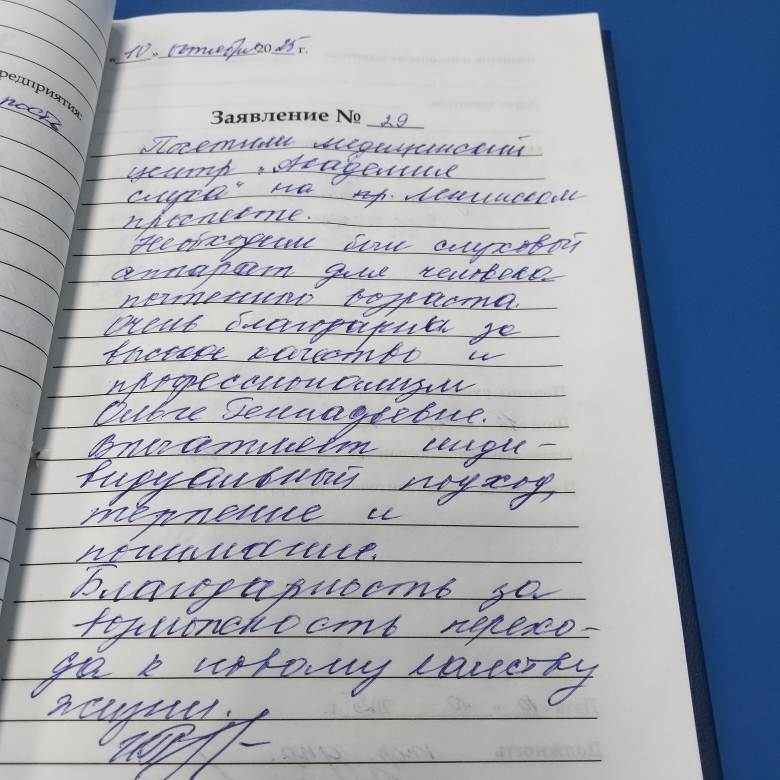 редприятия:
ность
« 10 » октября 2025 г.
Заявление № 29
Посетили медицинский
центр "Академия
слуха" на пр. Ленинском
проспекте.
Необходим был слуховой
аппарат для человека
почтенного возраста.
Очень благодарна за
высокое качество и
профессионализм
Ольге Геннадьевне.
Впечатляет инди-
видуальный подход,
терпение и
понимание.
Благодарность за
возможность перехо-
да к новому качеству
жизни.